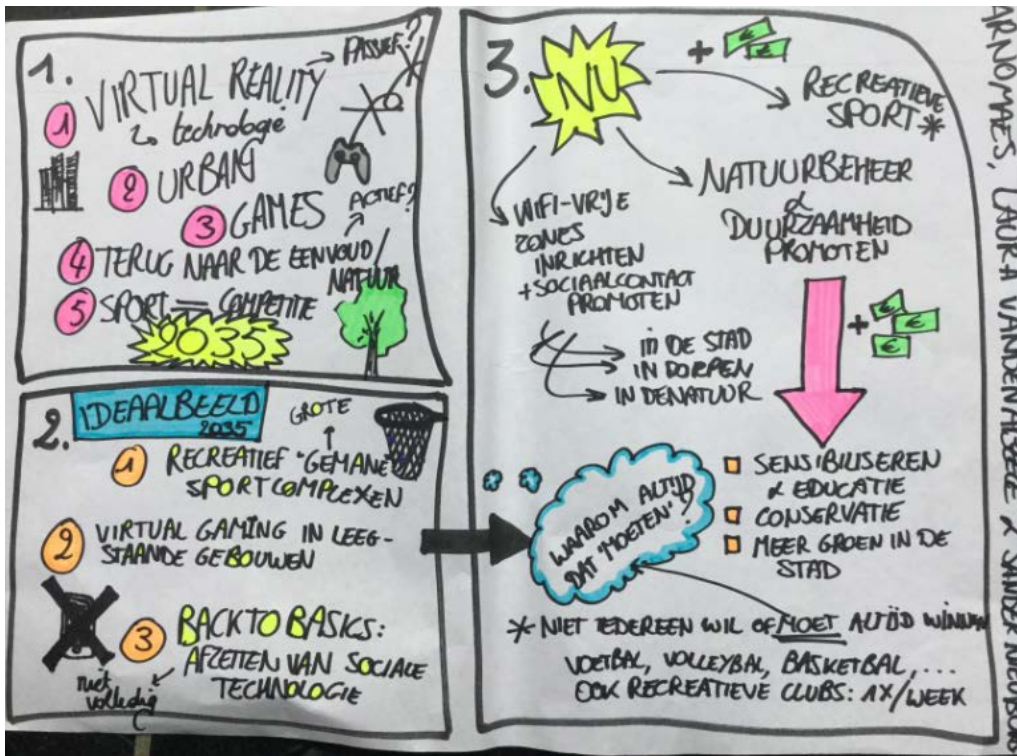 1.
1 VIRTUAL REALITY → PASSIEF?
↳ technologie
2 URBAN
3 GAMES
ACTIEF?
4 TERUG NAAR DE EENVOUD/
NATUUR
5 SPORT = COMPETITIE
2035
2. IDEAALBEELD
2035
GROTE
1 RECREATIEF "GEMANE"
SPORTCOMPLEXEN
2 VIRTUAL GAMING IN LEEG-
STAANDE GEBOUWEN
3 BACK TO BASICS:
AFZETTEN VAN SOCIALE
TECHNOLOGIE
niet
volledig
3. NU
+ € €
RECREATIEVE
SPORT *
NATUURBEHEER
&
DUURZAAMHEID
PROMOTEN
WIFI-VRIJE
ZONES
INRICHTEN
+ SOCIAAL CONTACT
PROMOTEN
in DE STAD
IN DORPEN
IN DE NATUUR
+ € € €
SENSIBILISEREN
& EDUCATIE
CONSERVATIE
MEER GROEN IN DE
STAD
WAAROM ALTIJD
DAT 'MOETEN'?
* NIET IEDEREEN WIL OF MOET ALTIJD WINNEN
VOETBAL, VOLLEYBAL, BASKETBAL, ...
OOK RECREATIEVE CLUBS: 1X/WEEK
MAES, LAURA & SANDER